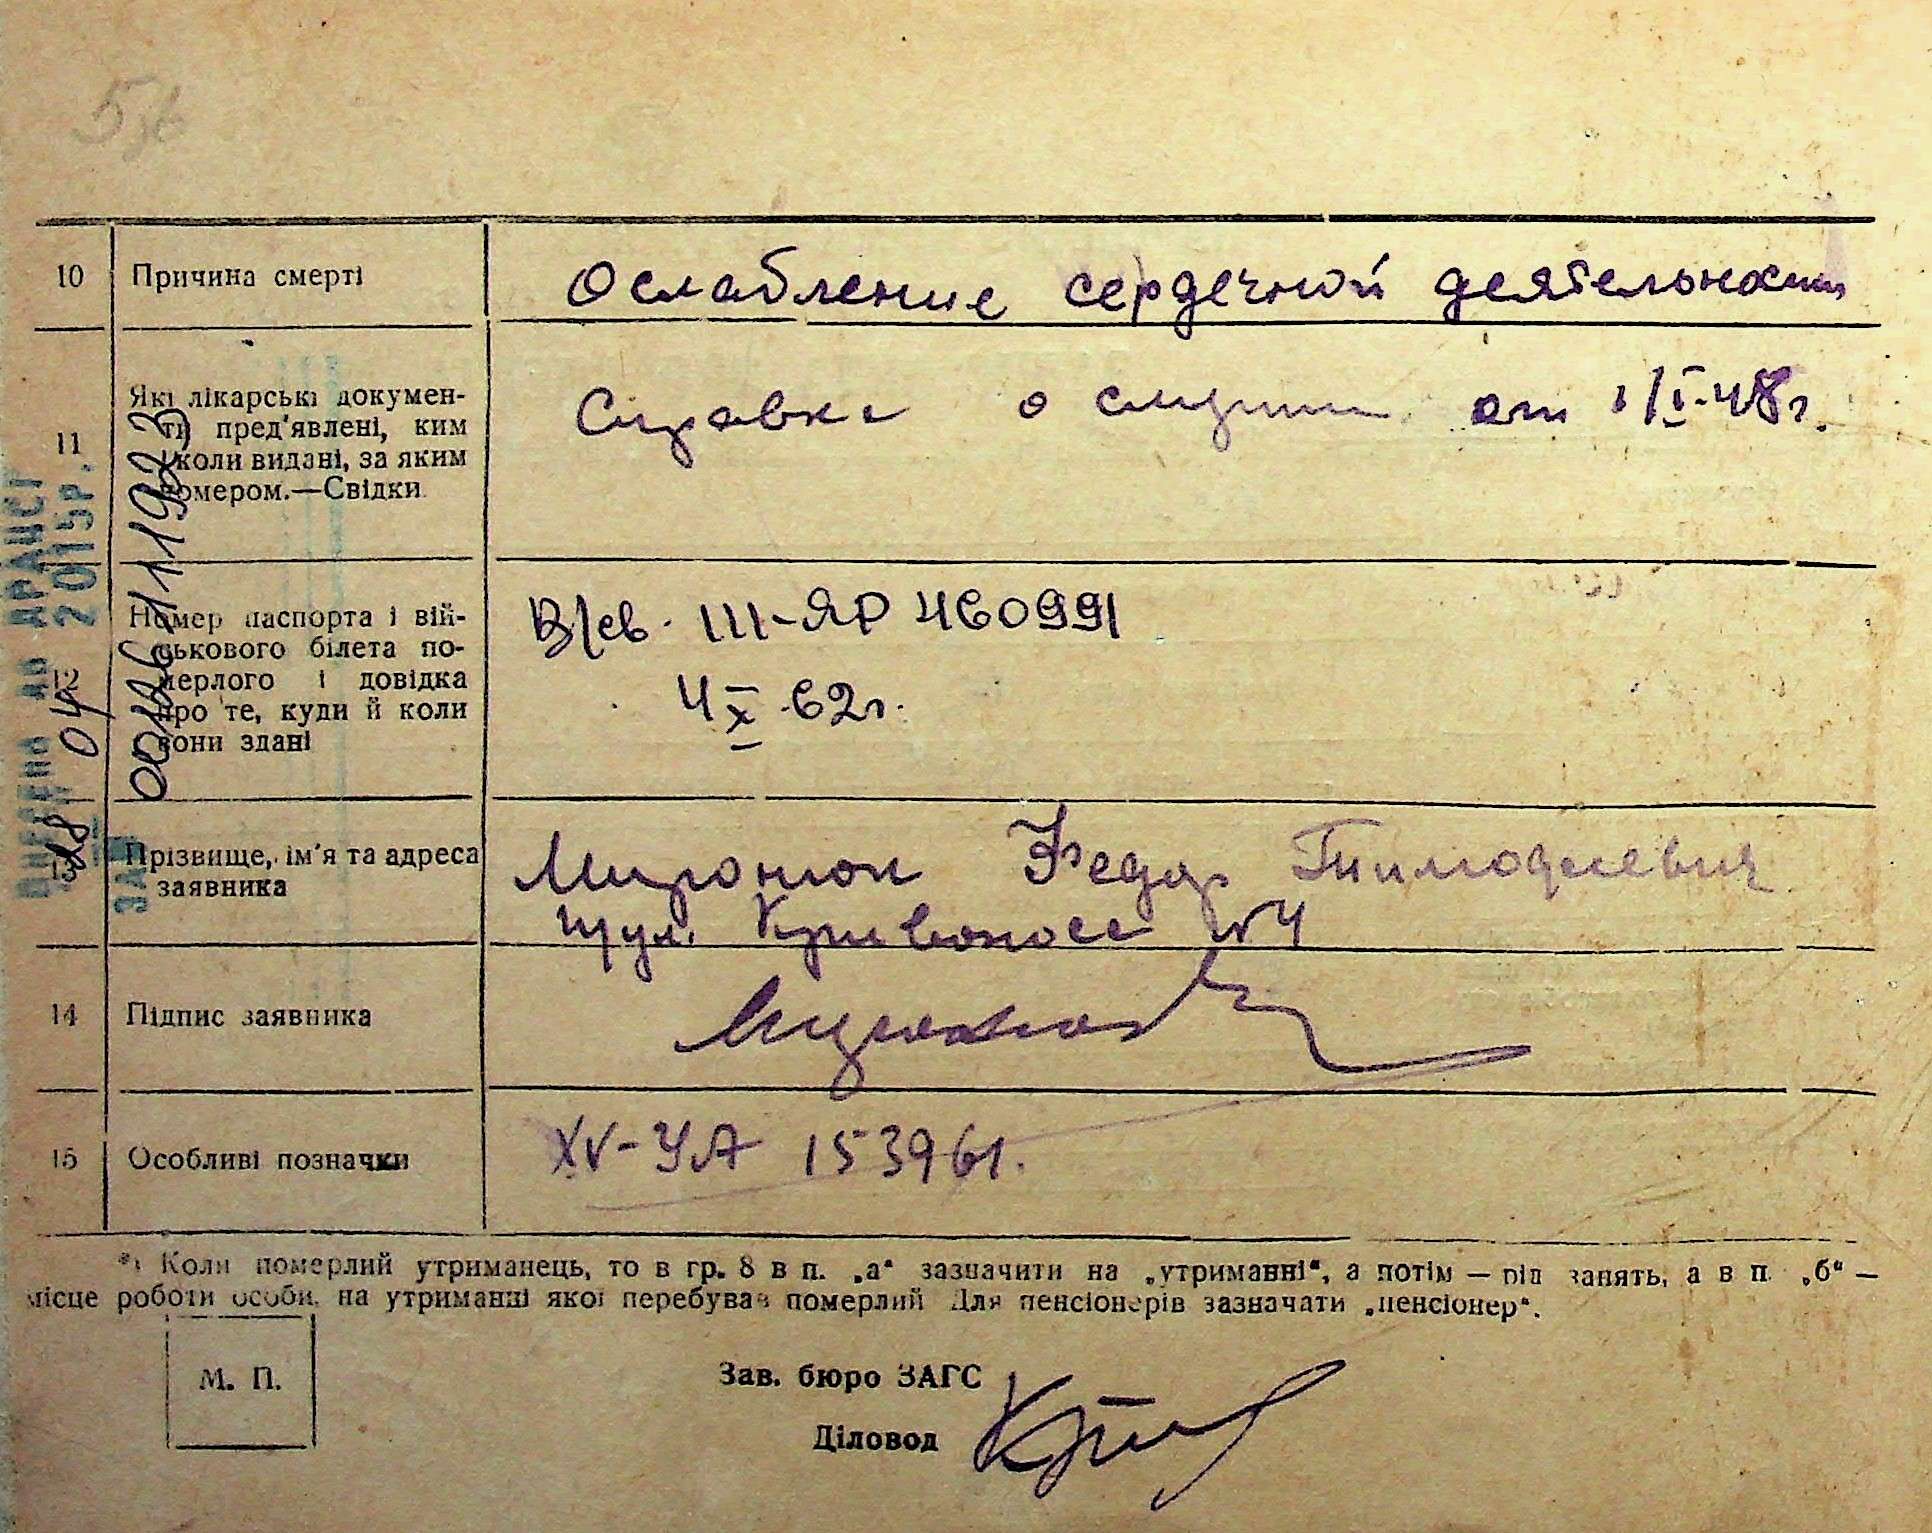 10 Причина смерті Ослабление сердечной деятельности
11 Які лікарські докумен-
ти пред'явлені, ким
і коли видані, за яким
номером.—Свідки
Справка о смерти от 1/I-48г.
12 Номер паспорта і вій-
ськового білета по-
мерлого і довідка
про те, куди й коли
вони здані
В/св. III-ЯР 460991
4 X 62г.
13 Прізвище, ім'я та адреса
заявника
Миронюк Федор Тимофеевич
ул. Кривоноса №4
14 Підпис заявника
15 Особливі позначки XV-УА 153961.
*) Коли померлий утриманець, то в гр. 8 в п. „а“ зазначити на „утриманні“, а потім — рід занять, а в п. „б“ —
місце роботи особи, на утриманні якої перебував померлий. Для пенсіонерів зазначати „пенсіонер“.
М. П.
Зав. бюро ЗАГС
Діловод
ВНЕСЕНО ДО ДРАЦСГ
2015р.
04